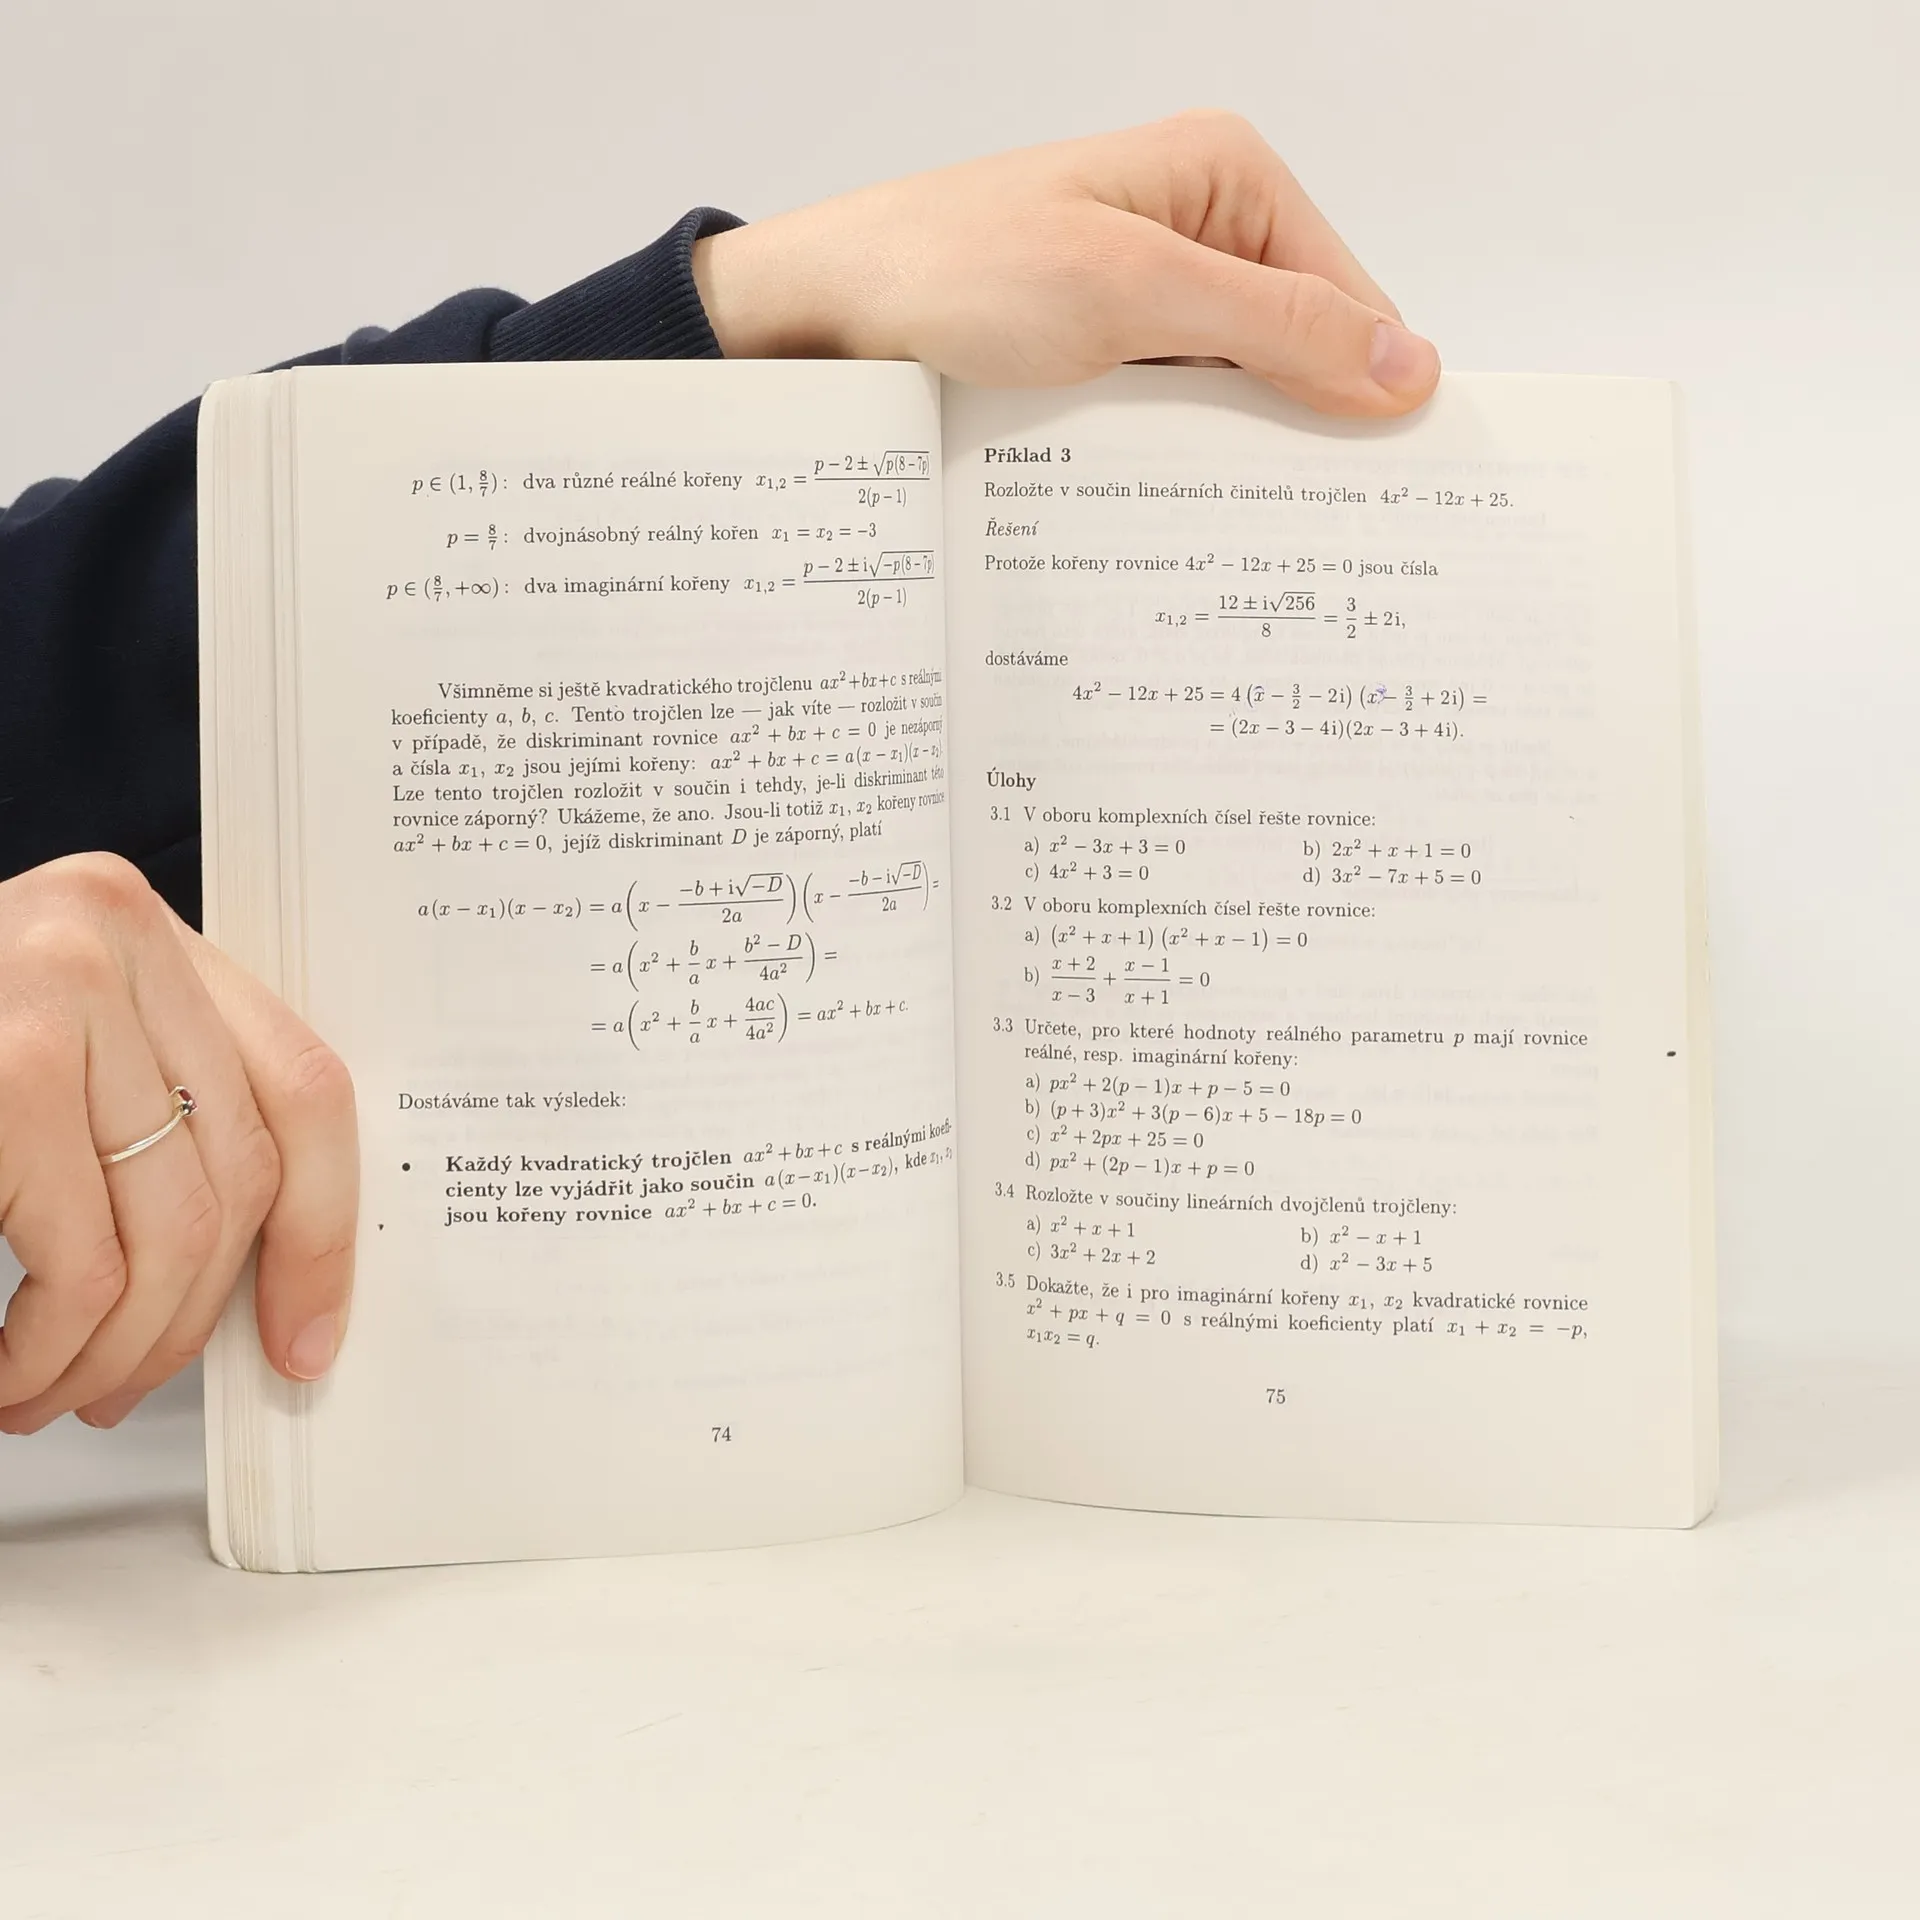 p ∈ (1, 8/7): dva různé reálné kořeny x₁,₂ = (p − 2 ± √(p(8 − 7p))) / (2(p − 1))
p = 8/7: dvojnásobný reálný kořen x₁ = x₂ = −3
p ∈ (8/7, +∞): dva imaginární kořeny x₁,₂ = (p − 2 ± i√(−p(8 − 7p))) / (2(p − 1))
Všimněme si ještě kvadratického trojčlenu ax² + bx + c s reálnými
koeficienty a, b, c. Tento trojčlen lze — jak víte — rozložit v součin
v případě, že diskriminant rovnice ax² + bx + c = 0 je nezáporný
a čísla x₁, x₂ jsou jejími kořeny: ax² + bx + c = a(x − x₁)(x − x₂).
Lze tento trojčlen rozložit v součin i tehdy, je-li diskriminant této
rovnice záporný? Ukážeme, že ano. Jsou-li totiž x₁, x₂ kořeny rovnice
ax² + bx + c = 0, jejíž diskriminant D je záporný, platí
a(x − x₁)(x − x₂) = a(x − (−b + i√(−D))/(2a))(x − (−b − i√(−D))/(2a)) =
= a(x² + (b/a)x + (b² − D)/(4a²)) =
= a(x² + (b/a)x + 4ac/(4a²)) = ax² + bx + c.
Dostáváme tak výsledek:
• Každý kvadratický trojčlen ax² + bx + c s reálnými koefi-
cienty lze vyjádřit jako součin a(x − x₁)(x − x₂), kde x₁, x₂
jsou kořeny rovnice ax² + bx + c = 0.
74
Příklad 3
Rozložte v součin lineárních činitelů trojčlen 4x² − 12x + 25.
Řešení
Protože kořeny rovnice 4x² − 12x + 25 = 0 jsou čísla
x₁,₂ = (12 ± i√256)/8 = 3/2 ± 2i,
dostáváme
4x² − 12x + 25 = 4(x − 3/2 − 2i)(x − 3/2 + 2i) =
= (2x − 3 − 4i)(2x − 3 + 4i).
Úlohy
3.1 V oboru komplexních čísel řešte rovnice:
a) x² − 3x + 3 = 0 b) 2x² + x + 1 = 0
c) 4x² + 3 = 0 d) 3x² − 7x + 5 = 0
3.2 V oboru komplexních čísel řešte rovnice:
a) (x² + x + 1)(x² + x − 1) = 0
b) (x + 2)/(x − 3) + (x − 1)/(x + 1) = 0
3.3 Určete, pro které hodnoty reálného parametru p mají rovnice
reálné, resp. imaginární kořeny:
a) px² + 2(p − 1)x + p − 5 = 0
b) (p + 3)x² + 3(p − 6)x + 5 − 18p = 0
c) x² + 2px + 25 = 0
d) px² + (2p − 1)x + p = 0
3.4 Rozložte v součiny lineárních dvojčlenů trojčleny:
a) x² + x + 1 b) x² − x + 1
c) 3x² + 2x + 2 d) x² − 3x + 5
3.5 Dokažte, že i pro imaginární kořeny x₁, x₂ kvadratické rovnice
x² + px + q = 0 s reálnými koeficienty platí x₁ + x₂ = −p,
x₁x₂ = q.
75